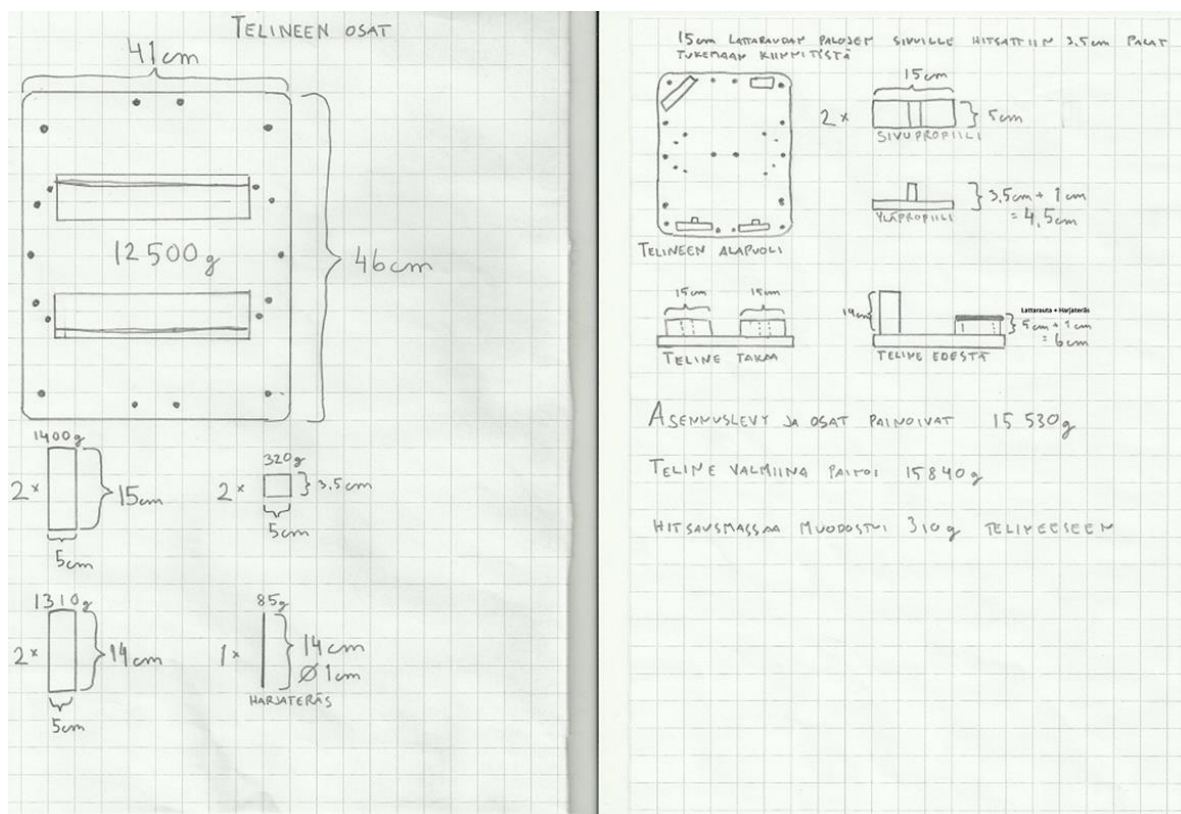 TELINEEN OSAT
41cm
12500g
46cm
1400g
2×
15cm
5cm
320g
2×
3.5cm
5cm
1310g
2×
14cm
5cm
85g
1×
14cm
Ø1cm
HARJATERÄS
15cm LATTARAUDAN PALOJEN SIVUILLE HITSATTIIN 3,5cm PALAT
TUKEMAAN KIINNITYSTÄ
TELINEEN ALAPUOLI
15cm
2×
5cm
SIVUPROPIILI
3,5cm + 1cm
= 4,5cm
YLÄPROPIILI
15cm
15cm
TELINE TAKAA
14cm
Lattarauta + Harjateräs
5cm + 1cm
= 6cm
TELINE EDESTÄ
ASENNUSLEVY JA OSAT PAINOIVAT 15 530g
TELINE VALMIINA PAINOI 15840g
HITSAUSMASSAA MUODOSTUI 310g TELINEESEEN